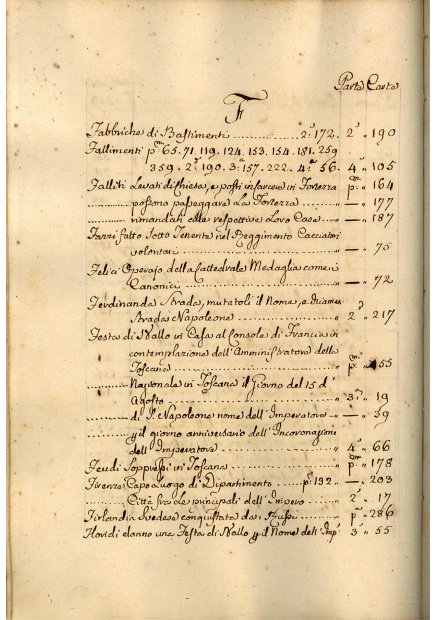 Parte Carte
F
Fabbriche di Bastimenti ........... 2.ª 172. 2.ª " 190
Fallimenti pma 65. 71. 119. 124. 153. 154. 181. 259
359. 2.ª 190. 3.ª 157. 222. 4.ª 56. 4.ª " 105
Falliti Levati di Chiesa, e posti in carcere in Fortezza pma " 164
........... possono passeggiare La Fortezza ........... " — " 177
........... rimandati alle respettive Loro Case ........ " — " 187
Farri fatto Sotto Tenente nel Reggimento Cacciatori
volontari ........... " — " 75
Felici Operajo della Cattedrale Medaglia come i
Canonici ........... " — " 72
Ferdinanda Strada, mutatoli il Nome, e chiamasi
Strada Napoleone ........... " 2.ª " 217
Festa di Ballo in Casa al Console di Francia in
contemplazione dell'Amministratore della
Toscana ........... " pma " 55
........... Nazionale in Toscana il Giorno del 15 d'
Agosto ........... " 3.ª " 19
........... di S. Napoleone nome dell'Imperatore ... " — " 39
........... p il giorno anniversario dell'Incoronazione
dell'Imperatore ........... " 4.ª " 66
Feudi Soppressi in Toscana ........... " pma " 178
Firenze Capo Luogo di Dipartimento ...... pma 132 .. " — " 203
........... Città fra le principali dell'Impero ...... " 2.ª " 17
Firlandia Svedese conquistata da i Russi ...... " pma " 286
Floridi danno una Festa di Ballo p il Nome dell'Imp.e 3.ª " 55